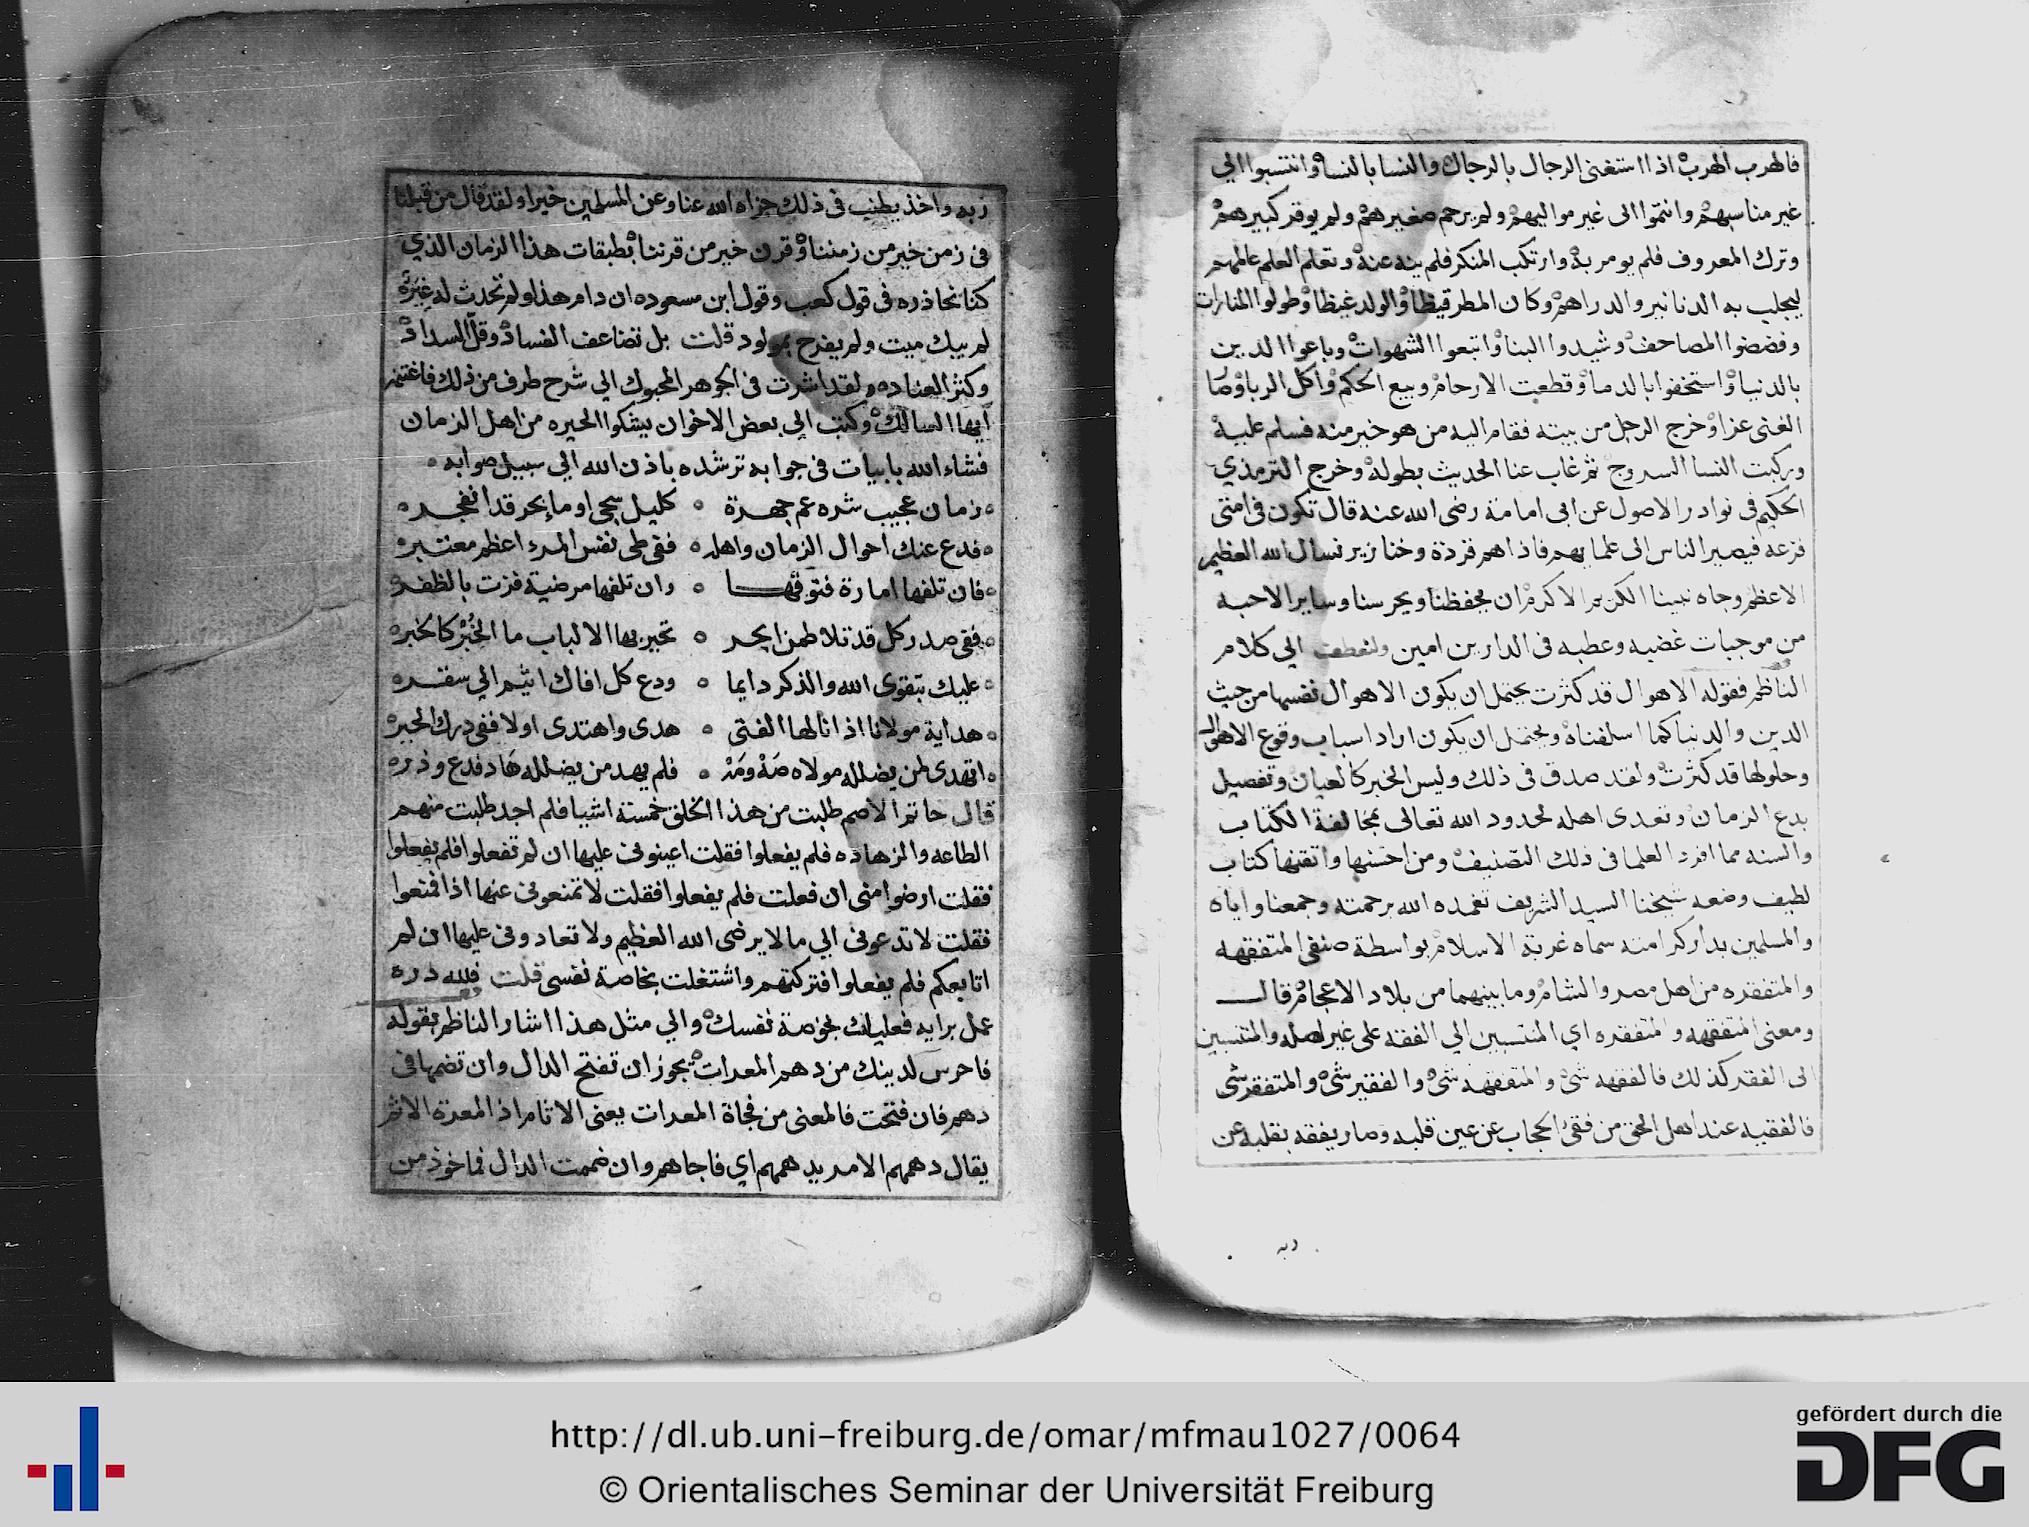 فالهرب الهرب اذا استغنى الرجال بالرجال والنسا بالنسا وانتسبوا الي
غير مناسبهم وانتموا الى غير مواليهم ولم يرحم صغيرهم ولم يوقر كبيرهم
وترك المعروف فلم يومر به وارتكب المنكر فلم ينه عنه وتعلم العلم عالمهم
ليجلب به الدنانير والدراهم وكان المطر قيظا والولد غيظا وطولوا المنارات
وفضضوا المصاحف وشيدوا البنا واتبعوا الشهوات وباعوا الدين
بالدنيا واستخفوا بالدما وقطعت الارحام وبيع الحكم واكل الربا وصا
الغنى عزا وخرج الرجل من بيته فقام اليه من هو خير منه فسلم عليه
وركبت النسا السروج ثم غاب عنا الحديث بطوله وخرج الترمذي
الحكيم في نوادر الاصول عن ابى امامة رضى الله عنه قال تكون في امتى
فزعة فيصير الناس الى علمايهم فاذا هم قردة وخنازير نسال الله العظيم
الاعظم وجاه نبينا الكريم الاكرم ان يحفظنا ويحرسنا وساير الاحبه
من موجبات غضبه وعطبه فى الدارين امين الي كلام
الناظم فقوله الاهوال قد كثرت يحتمل ان يكون الاهوال نفسها من حيث
الدين والدنيا كما اسلفناه ويحتمل ان يكون اراد اسباب وقوع الاهوال
وحلولها قد كثرت ولقد صدق فى ذلك وليس الخبر كالعيان وتفصيل
بدع الزمان وتعدى اهله لحدود الله تعالى بمخالفة الكتاب
والسنه مما افرد العلما فى ذلك التصنيف ومن احسنها واتقنها كتاب
لطيف وضعه شيخنا السيد الشريف تغمده الله برحمته وجمعنا واياه
والمسلمين بدار كرامته سماه غربة الاسلام بواسطة صنفى المتفقهه
والمتفقره من اهل مصر والشام وما بينهما من بلاد الاعجام قال
ومعنى المتفقهه والمتفقره اي المنتسبين الي الفقه على غير اصله والمنتسبين
الى الفقر كذلك فالفقيه شئ والمتفقهه شئ والفقير شئ والمتفقر شى
فالفقيه عند اهل الحق من فقئ الحجاب عن عين قلبه وصار يفقه بقلبه عن
ربه
ربه واخذ يطنب فى ذلك جزاه الله عنا وعن المسلمين خيرا ولقد قال من قبلنا
فى زمن خير من زمننا وقرن خير من قرننا بطبقات هذا الزمان الذي
كنا نحاذره فى قول كعب وقول ابن مسعود ان دام هذا ولم تحدث له غيره
لم يبك ميت ولم يفرح بمولود قلت بل تضاعف الفساد وقل السداد
وكثر العناد ولقد اشرت فى الجوهر المحبوك الي شرح طرف من ذلك فاغتنم
ايها السالك وكتب الي بعض الاخوان يشكوا الحيره من اهل الزمان
فشاء الله بابيات فى جوابه ترشده باذن الله الي سبيل صوابه
زمان عجيب شره عم جهرة كليل سجى او ما بحر قد انفجر
فدع عنك احوال الزمان واهله ففى طى نفس المرء اعظم معتبر
فان تلفها امارة فتوقها وان تلفها مرضية فزت بالظفر
ففى صدر كل قد تلاطمن ابحر تحير بها الالباب ما الخُبْر كالخبر
عليك بتقوى الله والذكر دايما ودع كل افاك اثيم الي سقر
هداية مولانا اذا نالها الفتى هدى واهتدى اولا ففى درك الحير
اتهدى لمن يضلله مولاه صَهْ ومَهْ فلم يهد من يضلله هَاد فدع وذر
قال حاتم الاصم طلبت من هذا الخلق خمسة اشيا فلم اجد طلبت منهم
الطاعه والزهاده فلم يفعلوا فقلت اعينونى عليها ان لم تفعلوا فلم يفعلوا
فقلت ارضوا منى ان فعلت فلم يفعلوا فقلت لا تمنعونى عنها اذا فمنعوا
فقلت لا تدعونى الي ما لا يرضى الله العظيم ولا تعادونى عليها ان لم
اتابعكم فلم يفعلوا فتركتهم واشتغلت بخاصة نفسى قلت فلله دره
عمل برايه فعليك بخوصة نفسك والي مثل هذا اشار الناظم بقوله
فاحرس لدينك من دهم المعرات يجوز ان تفتح الدال وان تضمها فى
دهم فان فتحت فالمعنى من فجاة المعرات يعنى الاثام اذ المعرة الاثم
يقال دهمهم الامر يدهمهم اي فاجاهم وان ضممت الدال فماخوذ من
http://dl.ub.uni-freiburg.de/omar/mfmau1027/0064
© Orientalisches Seminar der Universität Freiburg
gefördert durch die
DFG